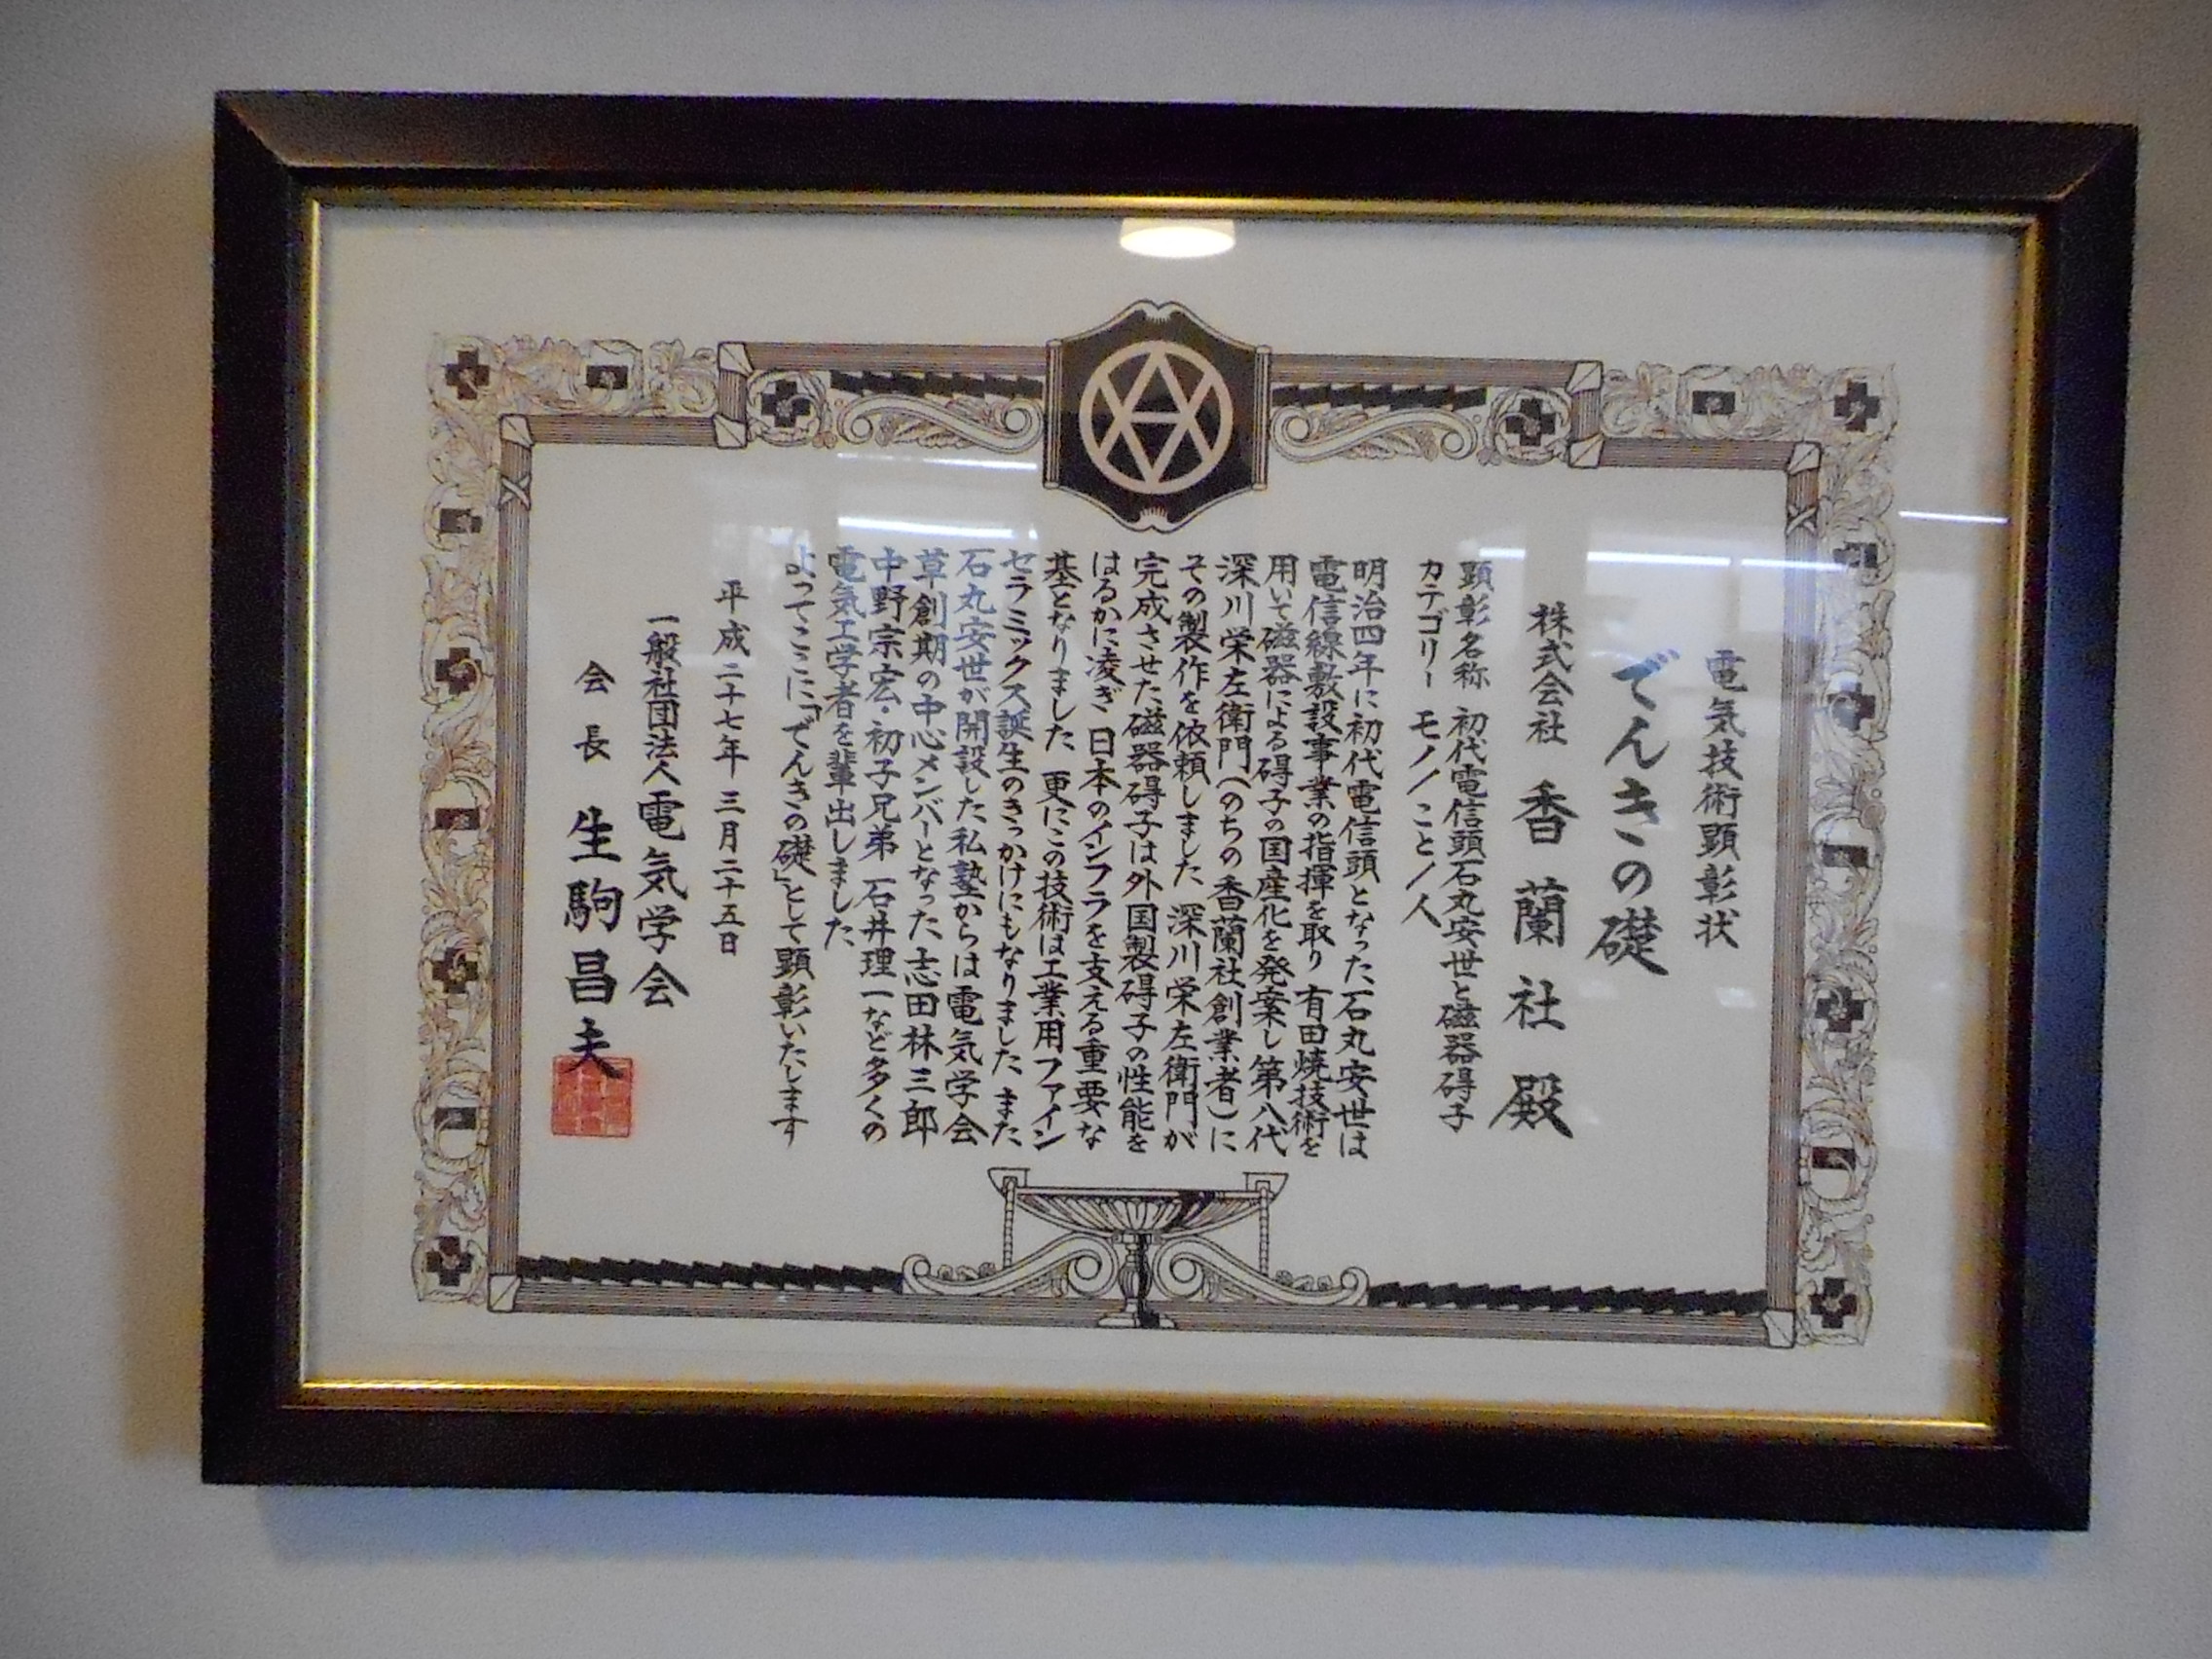 電気技術顕彰状
でんきの礎
株式会社 香蘭社 殿
顕彰名称 初代電信頭石丸安世と磁器碍子
カテゴリー モノ/こと/人
明治四年に初代電信頭となった石丸安世は
電信線敷設事業の指揮を取り 有田焼技術を
用いて磁器による碍子の国産化を発案し 第八代
深川栄左衛門(のちの香蘭社創業者)に
その製作を依頼しました 深川栄左衛門が
完成させた磁器碍子は外国製碍子の性能を
はるかに凌ぎ 日本のインフラを支える重要な
基となりました 更にこの技術は工業用ファイン
セラミックス誕生のきっかけにもなりました また
石丸安世が開設した私塾からは電気学会
草創期の中心メンバーとなった志田林三郎
中野宗宏・初子兄弟 石井理一など多くの
電気工学者を輩出しました
よってここに「でんきの礎」として顕彰いたします
平成二十七年 三月二十五日
一般社団法人電気学会
会長 生駒昌夫